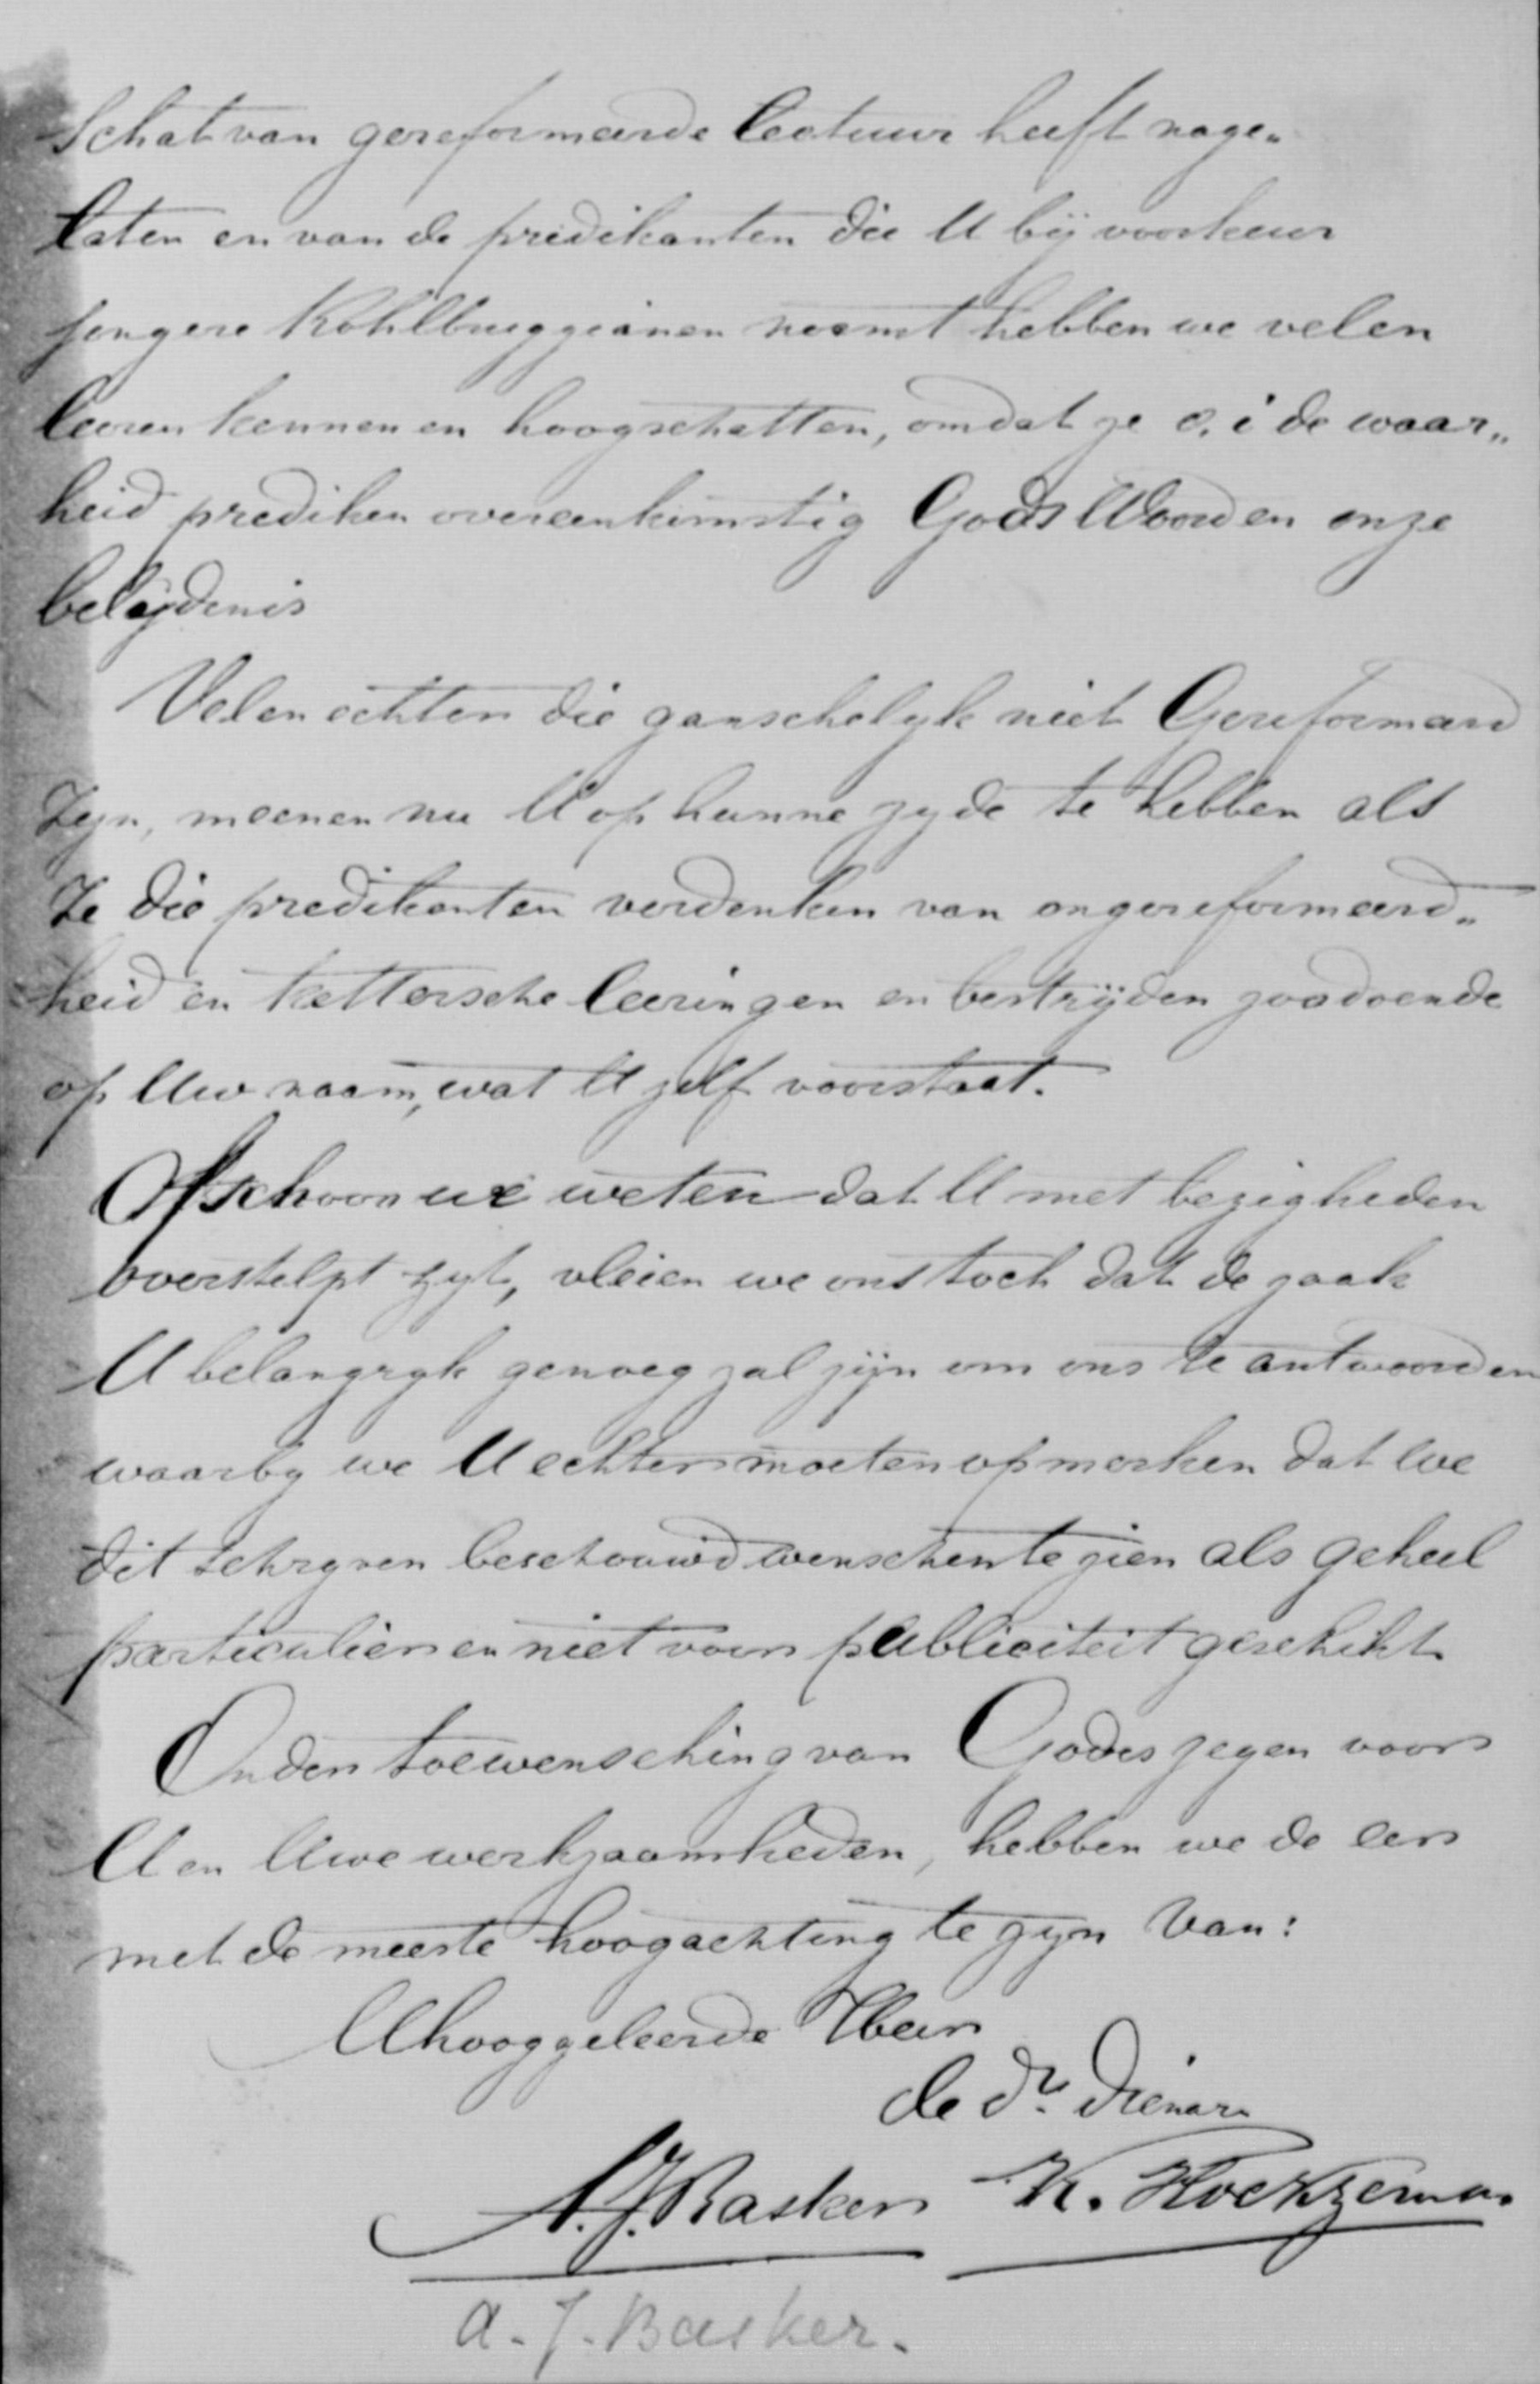 Schat van gereformeerde lectuur heeft nage„
laten en van de predikanten die U bij voorkeur
jongere Kohlbruggianen noemt hebben we velen
leeren kennen en hoogschatten, omdat ze o. i de waar„
heid prediken overeenkomstig Gods Woord en onze
belijdenis
Velen echter die ganschelyk niet Gereformeerd
zyn, meenen nu U op hunne zyde te hebben als
ze die predikanten verdenken van ongereformeerd„
heid en kettersche leeringen en bestrijden zoodoende
op Uw naam, wat U zelf voorstaat.
Ofschoon we weten dat U met bezigheden
overstelpt zyt, vleien we ons toch dat de zaak
U belangryk genoeg zal zijn om ons te antwoorden
waarby we U echter moeten opmerken dat we
dit schryven beschouwd wenschen te zien als geheel
particulier en niet voor publiciteit geschikt.
Onder toewensching van Godes zegen voor
U en Uwe werkzaamheden, hebben we de eer
met de meeste hoogachting te zyn van:
Uhooggeleerde Heer
de dr. dienar
A. J. Basker K. Hoekzema.
A. J. Basker.